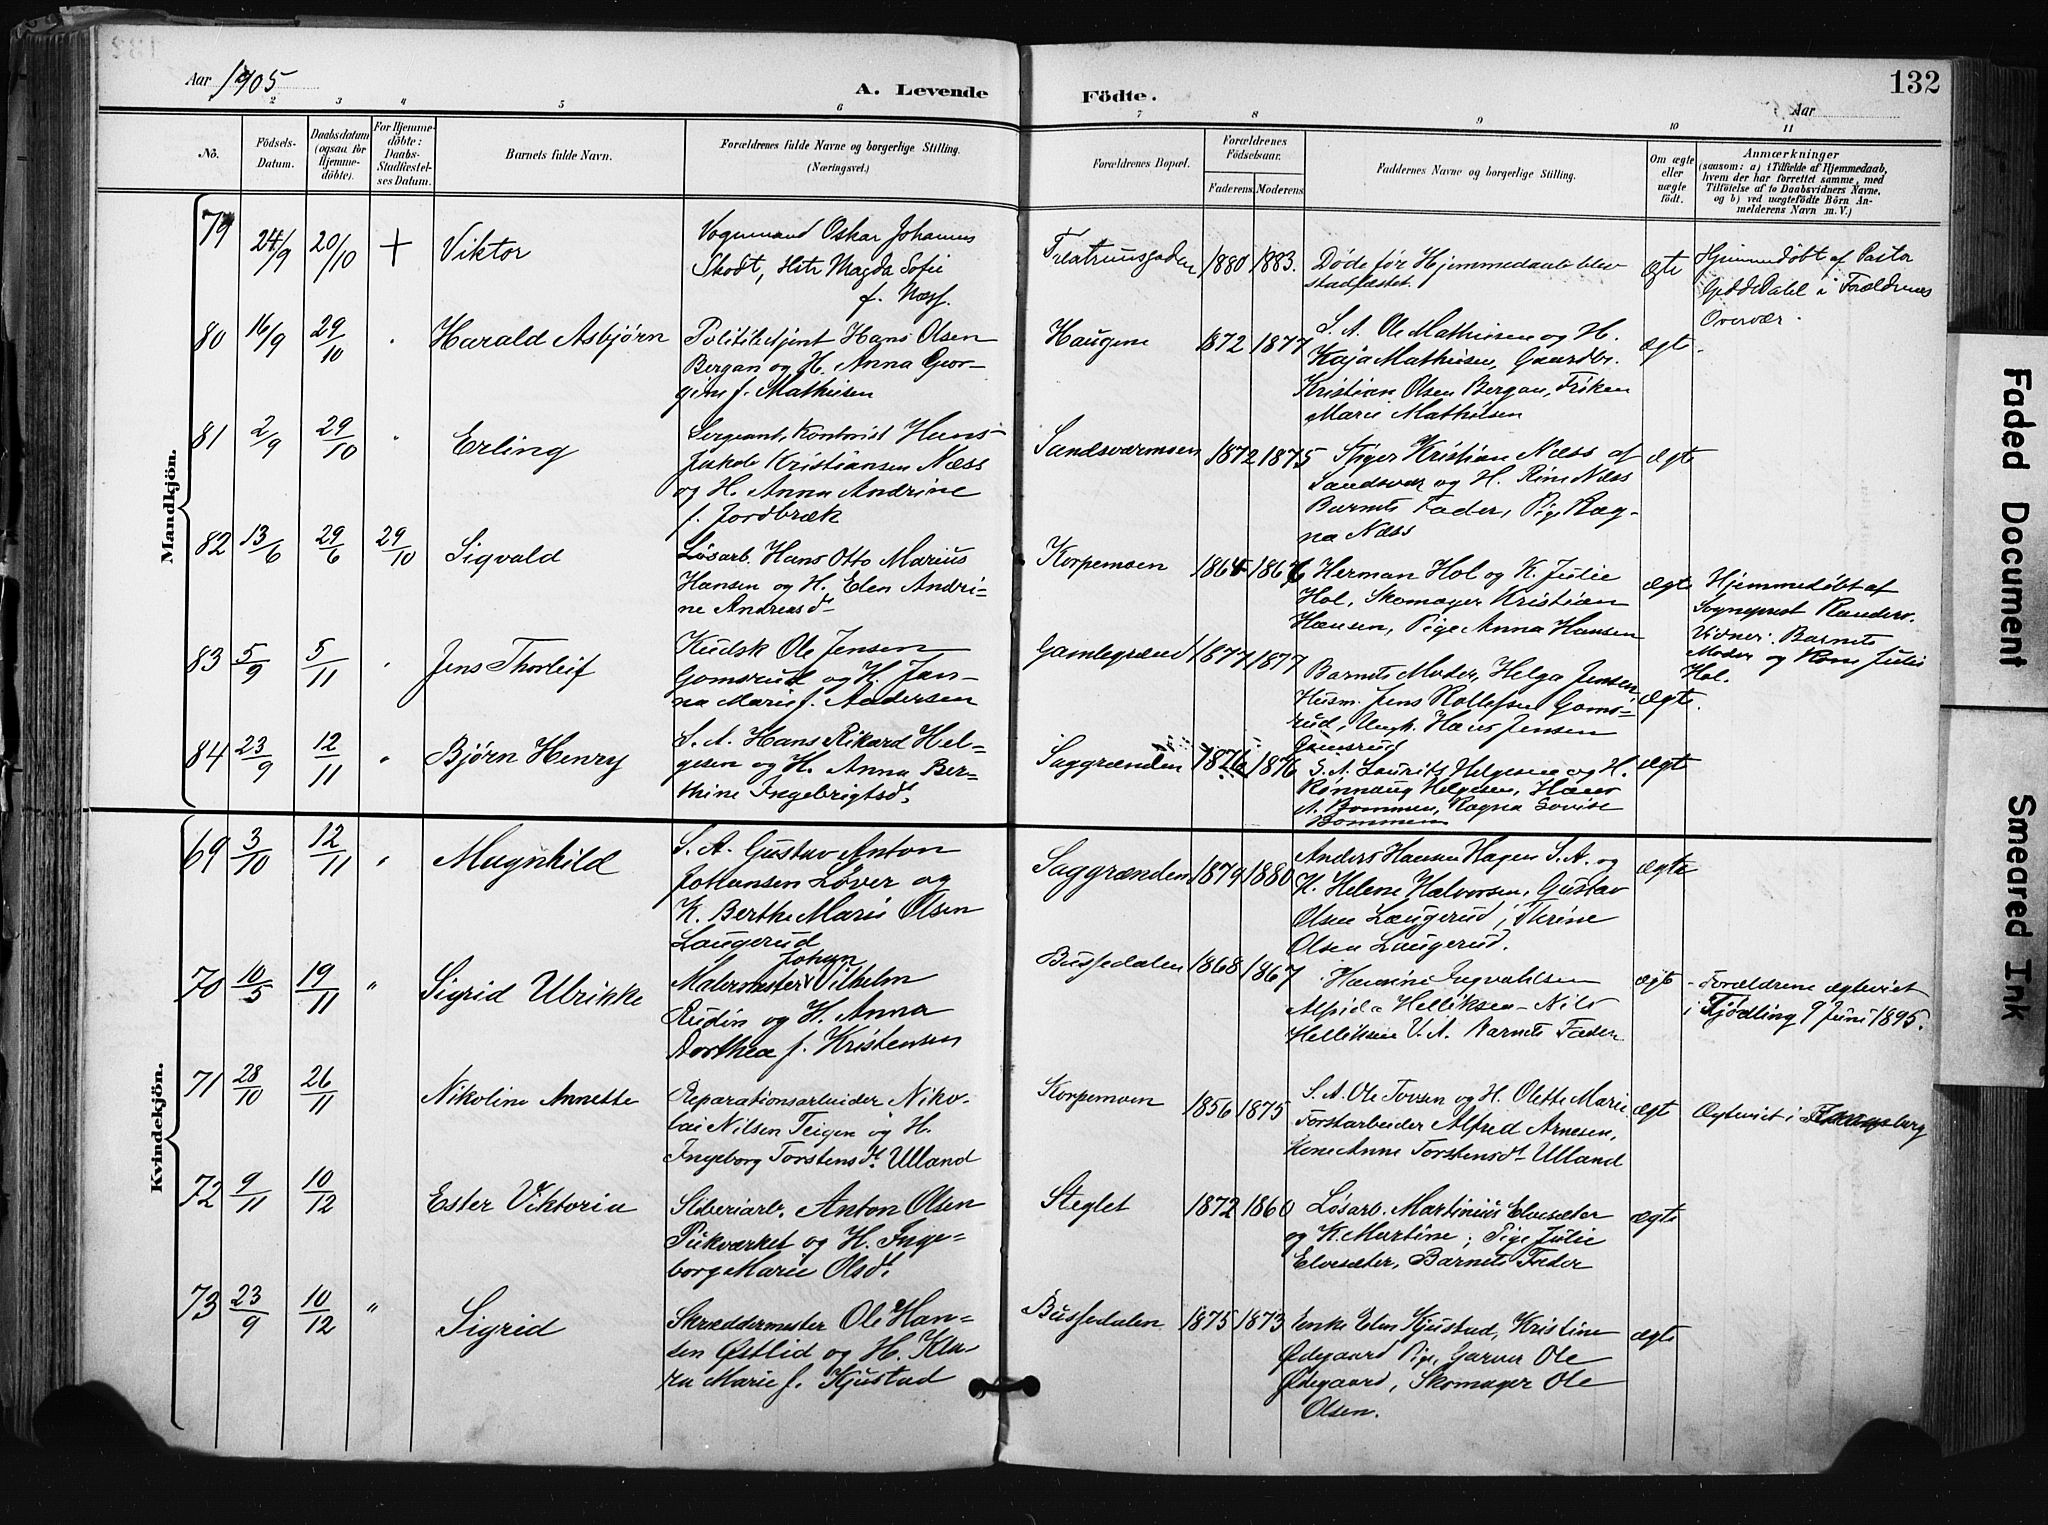 Aar 1905
A. Levende Födte.
132
Aar
2 3 4 5 6 7 8 9 10 11
No.
Födsels-
Datum.
Daabsdatum
(ogsaa for
Hjemme-
döbte).
For Hjemme-
döbte:
Daabs-
Stadfæstel-
ses Datum.
Barnets fulde Navn.
Forældrenes fulde Navne og borgerlige Stilling.
(Næringsvei.)
Forældrenes Bopæl.
Forældrenes
Födselsaar.
Faderens. Moderens.
Faddernes Navne og borgerlige Stilling.
Om ægte
eller
uægte
født.
Anmærkninger
(saasom: a) i Tilfælde af Hjemmedaab,
hvem der har forrettet samme, med
Tilföielse af to Daabsvidners Navne,
og b) ved uægtefödte Börn An-
melderens Navn m. V.)
Mandkjön.
79 24/9 20/10 + Viktor
Vognmand Oskar Johannes
Skodt, Hstr Magda Sofie
f. Næss.
1880 1883.
Døde før Hjemmedaab blev
stadfæstet.
ægte
Hjemmedøbt af Pastor
Gjeddedahl i Forældrenes
Overvær.
80 16/9 29/10 " Harald Asbjørn
Politibetjent Hans Olsen
Bergan og H. Anna Geor-
gine f. Mathisen
Haugene 1872 1877
S. A. Ole Mathisen og H.
Kaja Mathisen, Gaardbr.
Kristian Olsen Bergan, Frøken
Marie Mathisen
ægt.
81 2/9 29/10 " Erling
Sergeant, Kontorist Hans
Jakob Kristiansen Næss
og H. Anna Andrine
f. Jordbræk
Sandsværmoen 1872 1875
Stiger Kristian Næss af
Sandsvær og H. Rine Næss
Barnets Fader, Pige Rag-
na Næss
ægte
82 13/6 29/6 29/10 Sigvald
Løsarb. Hans Otto Marius
Hansen og H. Elen Andri-
ne Andreasdt.
Korpemoen 1864 1867
Herman Hol og K. Julie
Hol, Skomager Kristian
Hansen, Pige Anna Hansen
ægte
Hjemmedøbt af
Sogneprest Randers.
Vidner: Barnets
Moder og Kone Julie
Hol.
83 5/9 5/11 " Jens Thorleif
Kudsk Ole Jensen
Gomsrud og H. Jan-
na Marie f. Andersen
Gamlegrænd 1877 1877
Barnets Moder, Helga Jensen
Husm. Jens Rollefsen Goms-
rud, Ungk. Hans Jensen
Gomsrud
ægte.
84 23/9 12/11 " Bjørn Henry
S. A. Hans Rikard Hel-
gesen og H. Anna Ber-
thine Ingebrigtsdt.
Saggrænden 1876 1876
S. A. Laurits Helgesen og H.
Rønnaug Helgesen, Hans
A. Bommen, Ragna Lovise
Bommen
ægte
Kvindekjön.
69 3/10 12/11 " Magnhild
S. A. Gustav Anton
Johansen Løver og
K. Berthe Marie Olsen
Laugerud
Saggrænden 1879 1880
Anders Hansen Hagen S. A. og
K. Helene Halvorsen, Gustav
Olsen Laugerud, Thrine
Olsen Laugerud.
ægte
70 10/5 19/11 " Sigrid Ulrikke
Johan
Malermester Vilhelm
Rudin og H. Anna
Dorthea f. Kristensen
Bussedalen 1868 1867
Hansine Ingvaldsen
Alfrida Helliksen - Nils
Helliksen U. A. Barnets Fader
ægte
Forældrene ægteviet
i Fjødling 9 Juni 1895.
71 28/10 26/11 Nikoline Annette
Reparationsarbeider Niko-
lai Nilsen Teigen og H.
Ingeborg Torstensdt. Ulland
Korpemoen 1856 1875
S. A. Ole Torsen og H. Olette Marie
Forstarbeider Alfred Arnesen,
Kone Anne Torstensdt Ulland
ægte
Ægteviet i
72 9/11 10/12 Ester Viktoria
Sliberiarb. Anton Olsen
Pukværket og H. Inge-
borg Marie Olsdt.
Steglet 1872 1860
Løsarb. Martinius Elvesæter
og K. Martine, Pige Julie
Elvesæter, Barnets Fader
ægte
73 23/9 10/12 " Sigrid
Skræddermester Ole Han-
sen Østlid og H. Kla-
ra Marie f. Kjustad
Bussedalen 1875 1873
Enke Elen Kjustad, Kristine
Ødegaard Pige, Garver Ole
Ødegaard, Skomager Ole
Olsen.
ægte
Faded Document
Smeared Ink